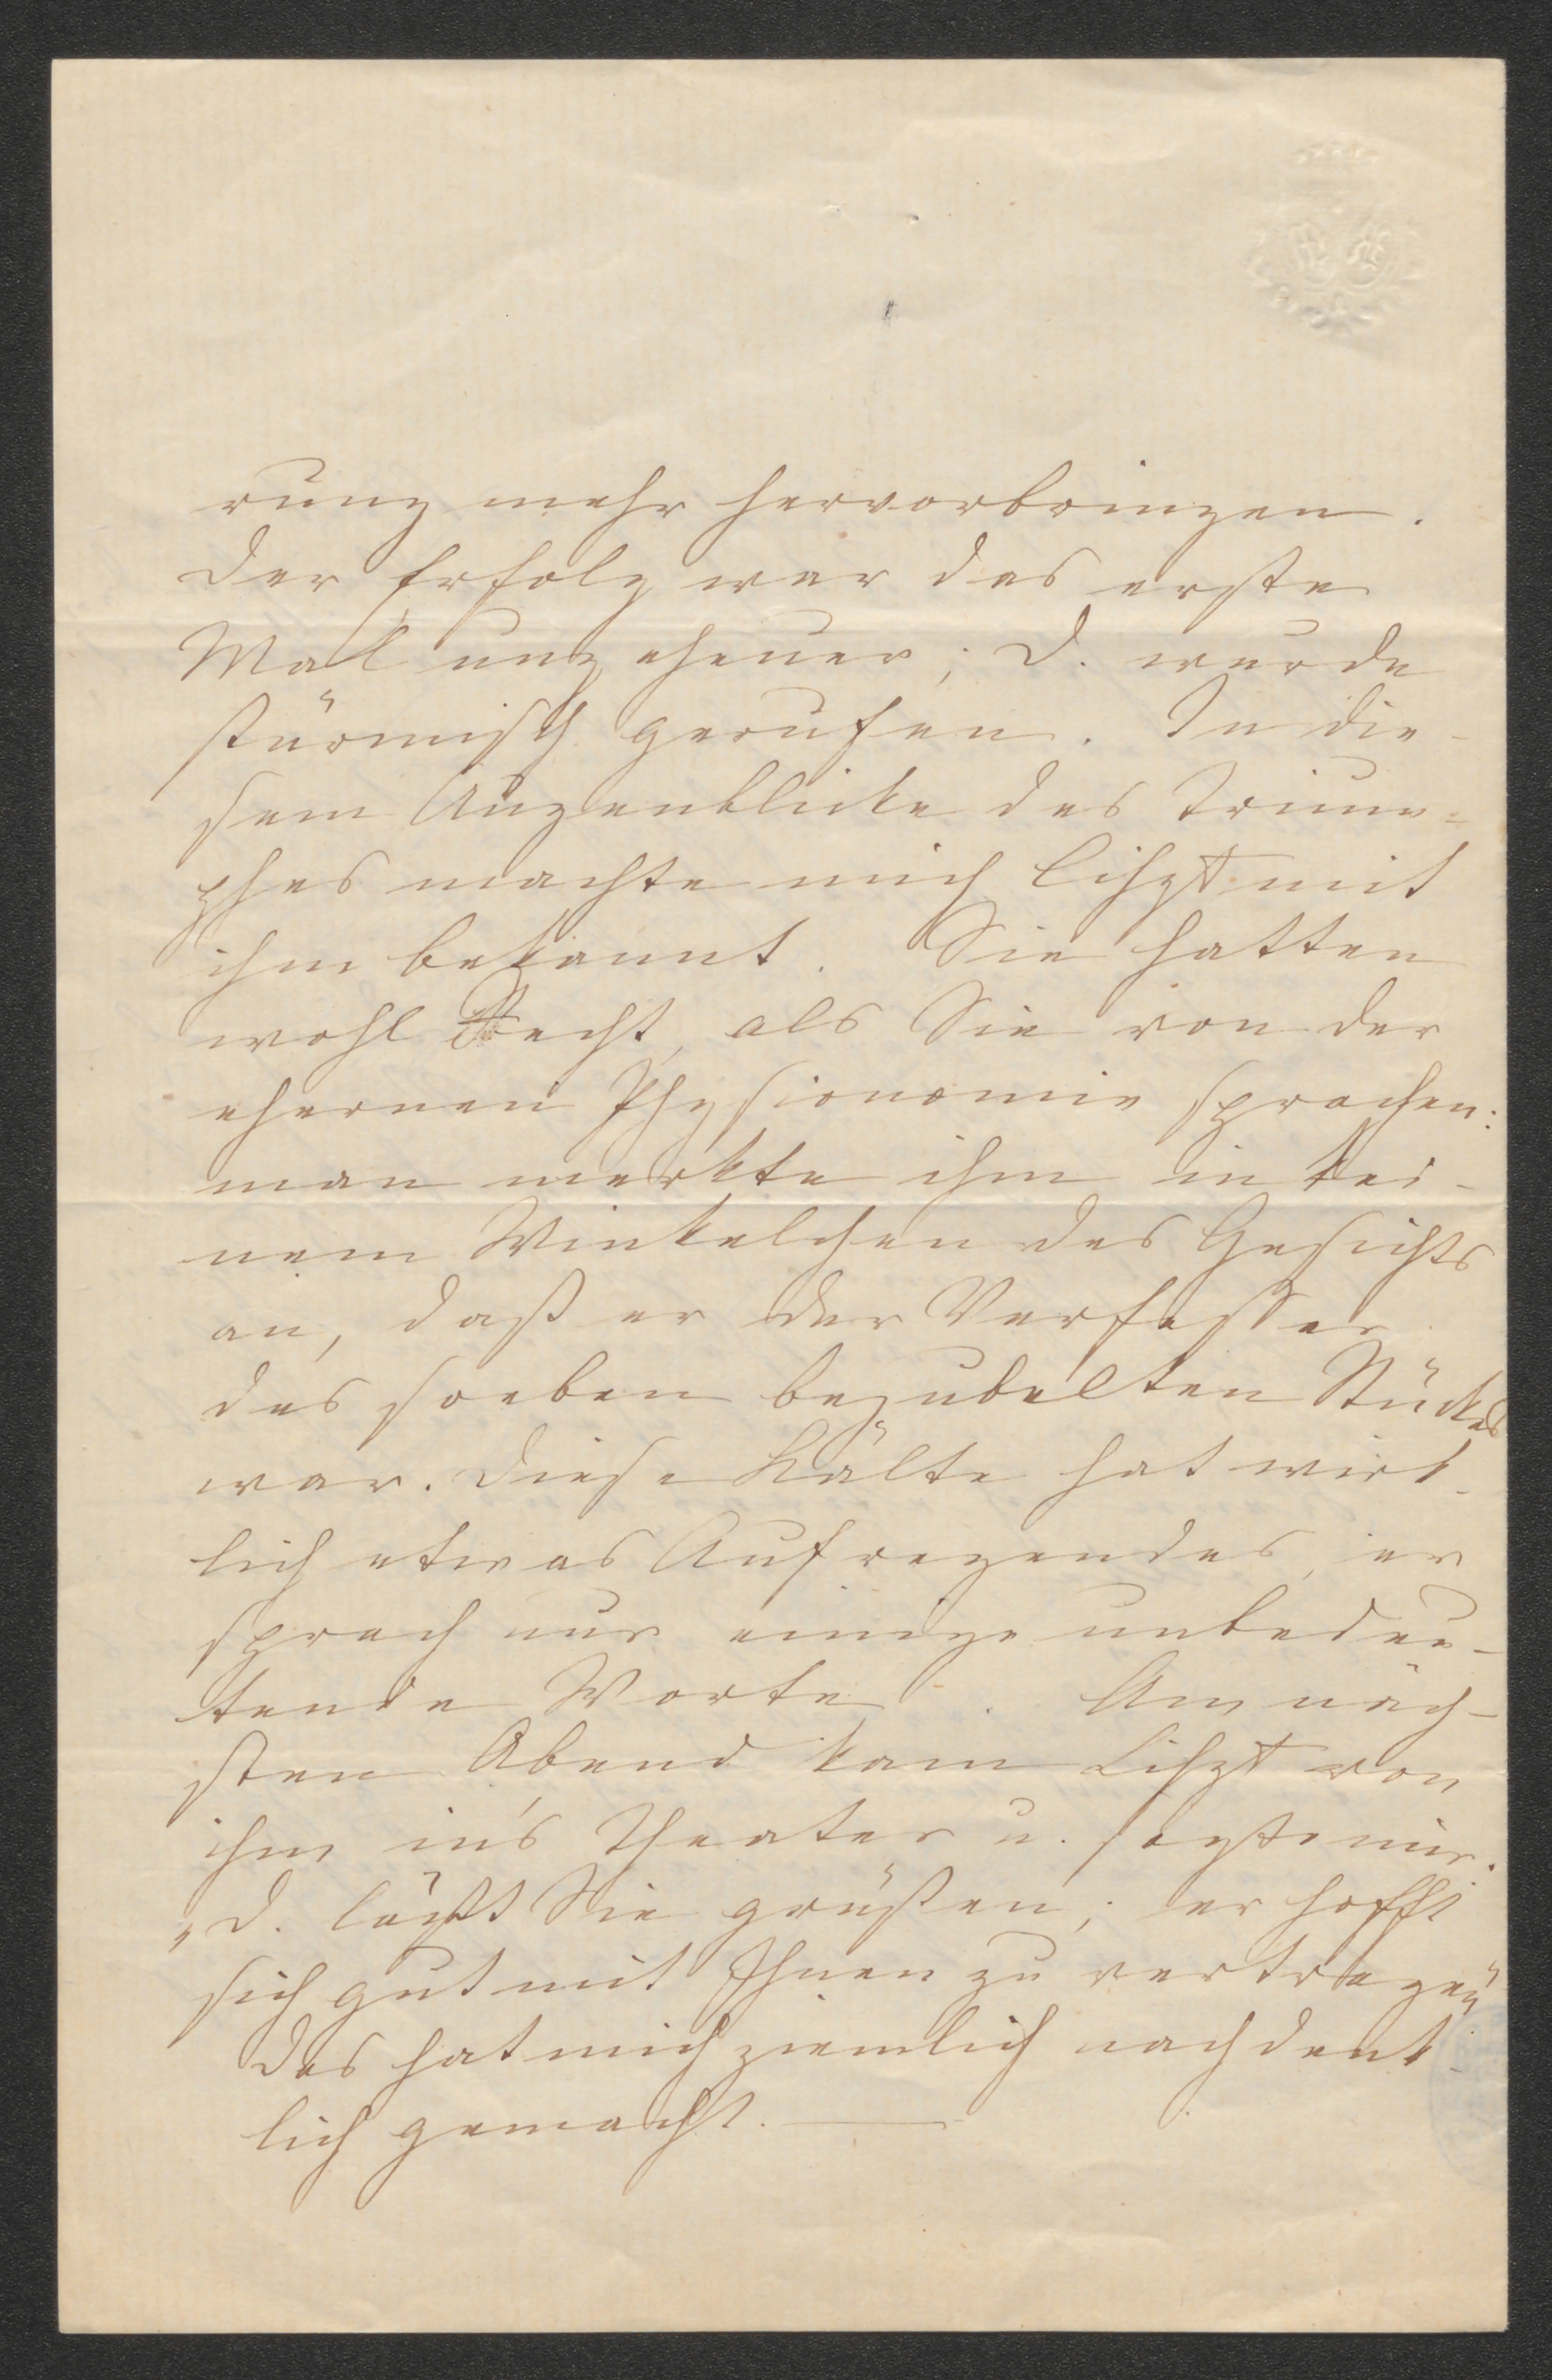 rung mehr hervorbringen.
Der Erfolg war das erste
Mal ungeheuer; D. wurde
stürmisch gerufen. In die-
sem Augenblicke des Trium-
phes machte mich Liszt mit
ihm bekannt. Sie hatten
wohl Recht, als Sie von der
ehernen Physionomie sprachen:
man merkte ihm in kei-
nem Winkelchen des Gesichts
an, daß er der Verfasser
des soeben bejubelten Stückes
war. Diese Kälte hat wirk-
lich etwas Aufregendes, er
sprach nur einige unbedeu-
tende Worte. Am näch-
sten Abend kam Liszt von
ihm in's Theater u. sagte mir:
„D. läßt Sie grüßen; er hofft
sich gut mit Ihnen zu vertragen"
Das hat mich ziemlich nachdenk-
lich gemacht. —